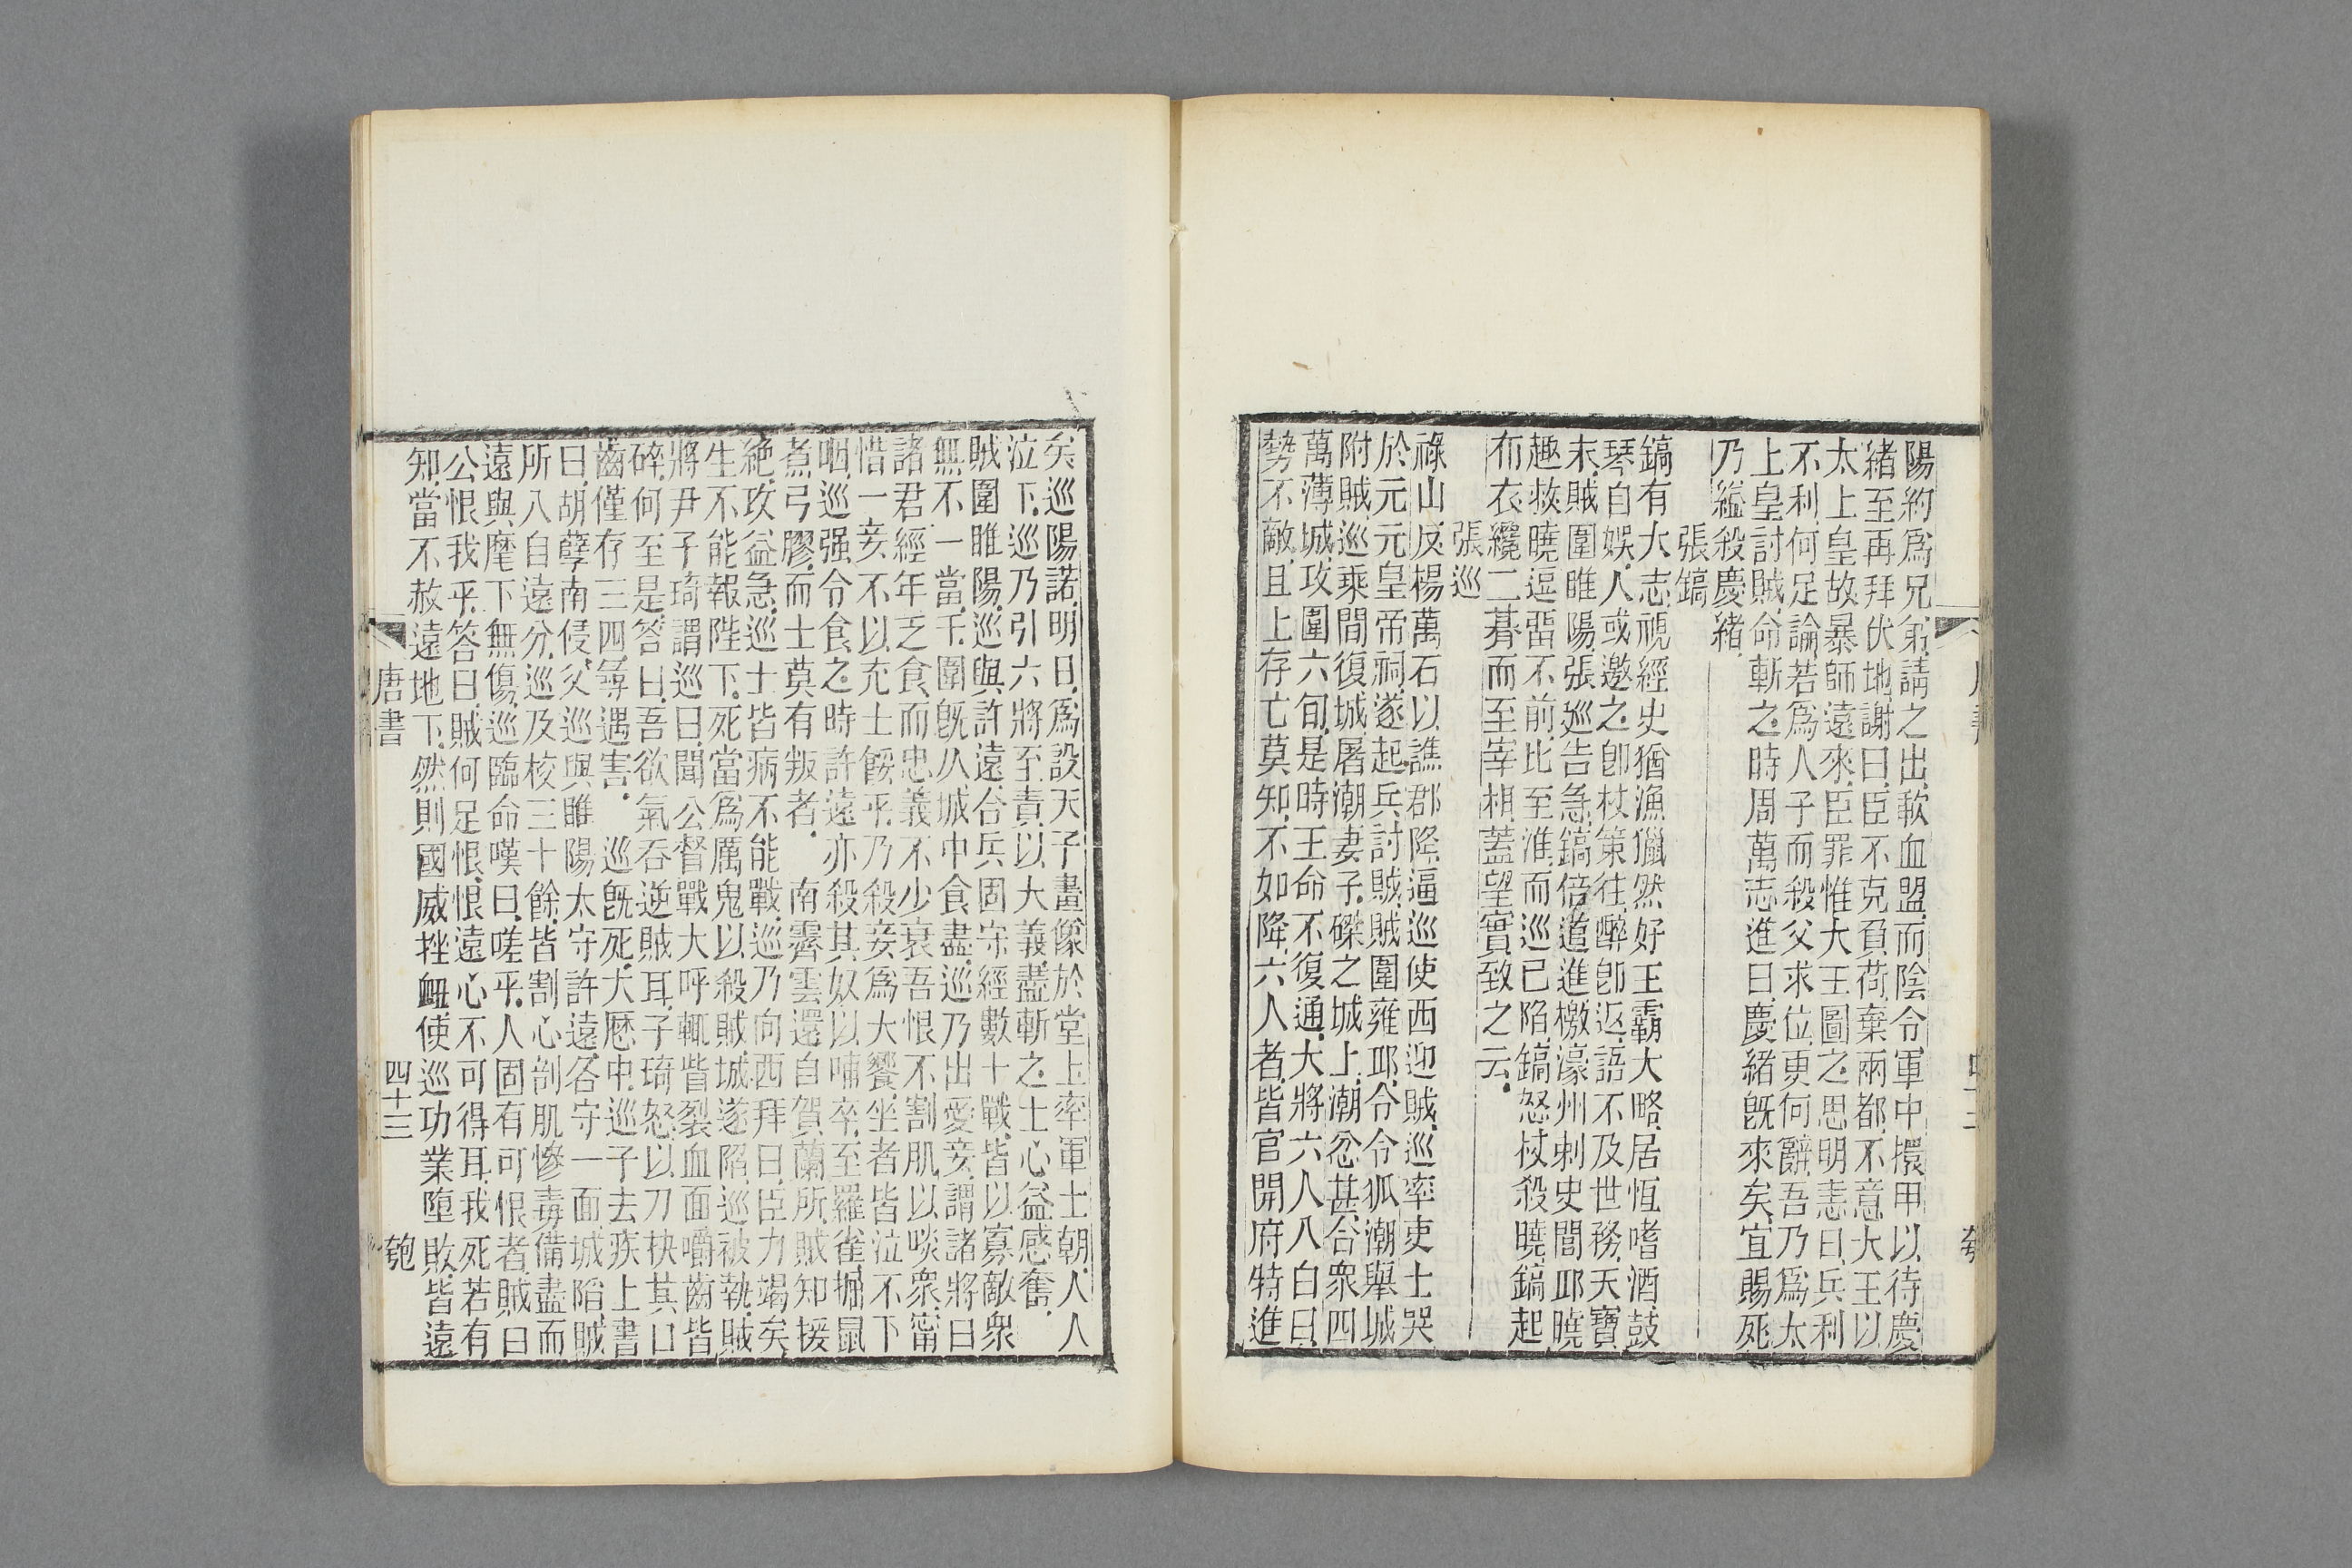 陽約爲兄弟請之出歃血盟而陰令軍中擐甲以待慶
緒至再拜伏地謝曰臣不克負荷棄兩都不意大王以
太上皇故暴師遠來臣罪惟大王圖之思明恚曰兵利
不利何足論若爲人子而殺父求位更何辭吾乃爲太
上皇討賊命斬之時周萬志進曰慶緒旣來矣宜賜死
乃縊殺慶緒
張鎬
鎬有大志視經史猶漁獵然好王霸大略居恆嗜酒鼓
琴自娛人或邀之卽杖策往醉卽返語不及世務天寶
末賊圍睢陽張廵告急鎬倍道進檄濠州刺史閭邱曉
趣救曉逗畱不前比至淮而巡已陷鎬怒杖殺曉鎬起
布衣纔二朞而至宰相蓋望實致之云
張巡
祿山反楊萬石以譙郡降逼巡使西迎賊巡率吏士哭
於元元皇帝祠遂起兵討賊賊圍雍邱令令狐潮舉城
附賊巡乘間復城屠潮妻子磔之城上潮忿甚合衆四
萬薄城攻圍六旬是時王命不復通大將六人八白曰
勢不敵且上存亡莫知不如降六人者皆官開府特進
矣巡陽諾明日爲設天子畫像於堂上率軍士朝人人
泣下巡乃引六將至責以大義盡斬之士心益感奮
賊圍睢陽巡與許遠合兵固守經數十戰皆以寡敵衆
無不一當千圍旣八城中食盡巡乃出愛妾謂諸將曰
諸君經年乏食而忠義不少衰吾恨不割肌以啖衆甯
惜一妾不以充士餒乎乃殺妾爲大饗坐者皆泣不下
咽巡强令食之時許遠亦殺其奴以哺卒至羅雀掘鼠
煮弓膠而士莫有叛者　南霽雲還自賀蘭所賊知援
絶攻益急巡士皆病不能戰巡乃向西拜曰臣力竭矣
生不能報陛下死當爲厲鬼以殺賊城遂陷巡被執賊
將尹子琦謂巡曰聞公督戰大呼輒眥裂血面嚼齒皆
碎何至是答曰吾欲氣吞逆賊耳子琦怒以刀抉其口
齒僅存三四尋遇害　巡旣死大厯中巡子去疾上書
曰胡孽南侵父巡與睢陽太守許遠各守一面城陷賊
所八自遠分巡及校三十餘皆割心剖肌慘毒備盡而
遠與麾下無傷巡臨命嘆曰嗟乎人固有可恨者賊曰
公恨我乎答曰賊何足恨恨遠心不可得耳我死若有
知當不赦遠地下然則國威挫衄使巡功業墮敗皆遠
唐書
四十三
匏